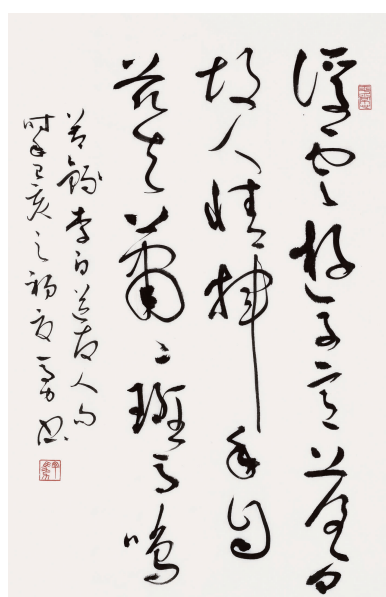 浮云游子意落日
故人情挥手自
兹去萧萧班马鸣
节录李白送友人句
己亥之初夏